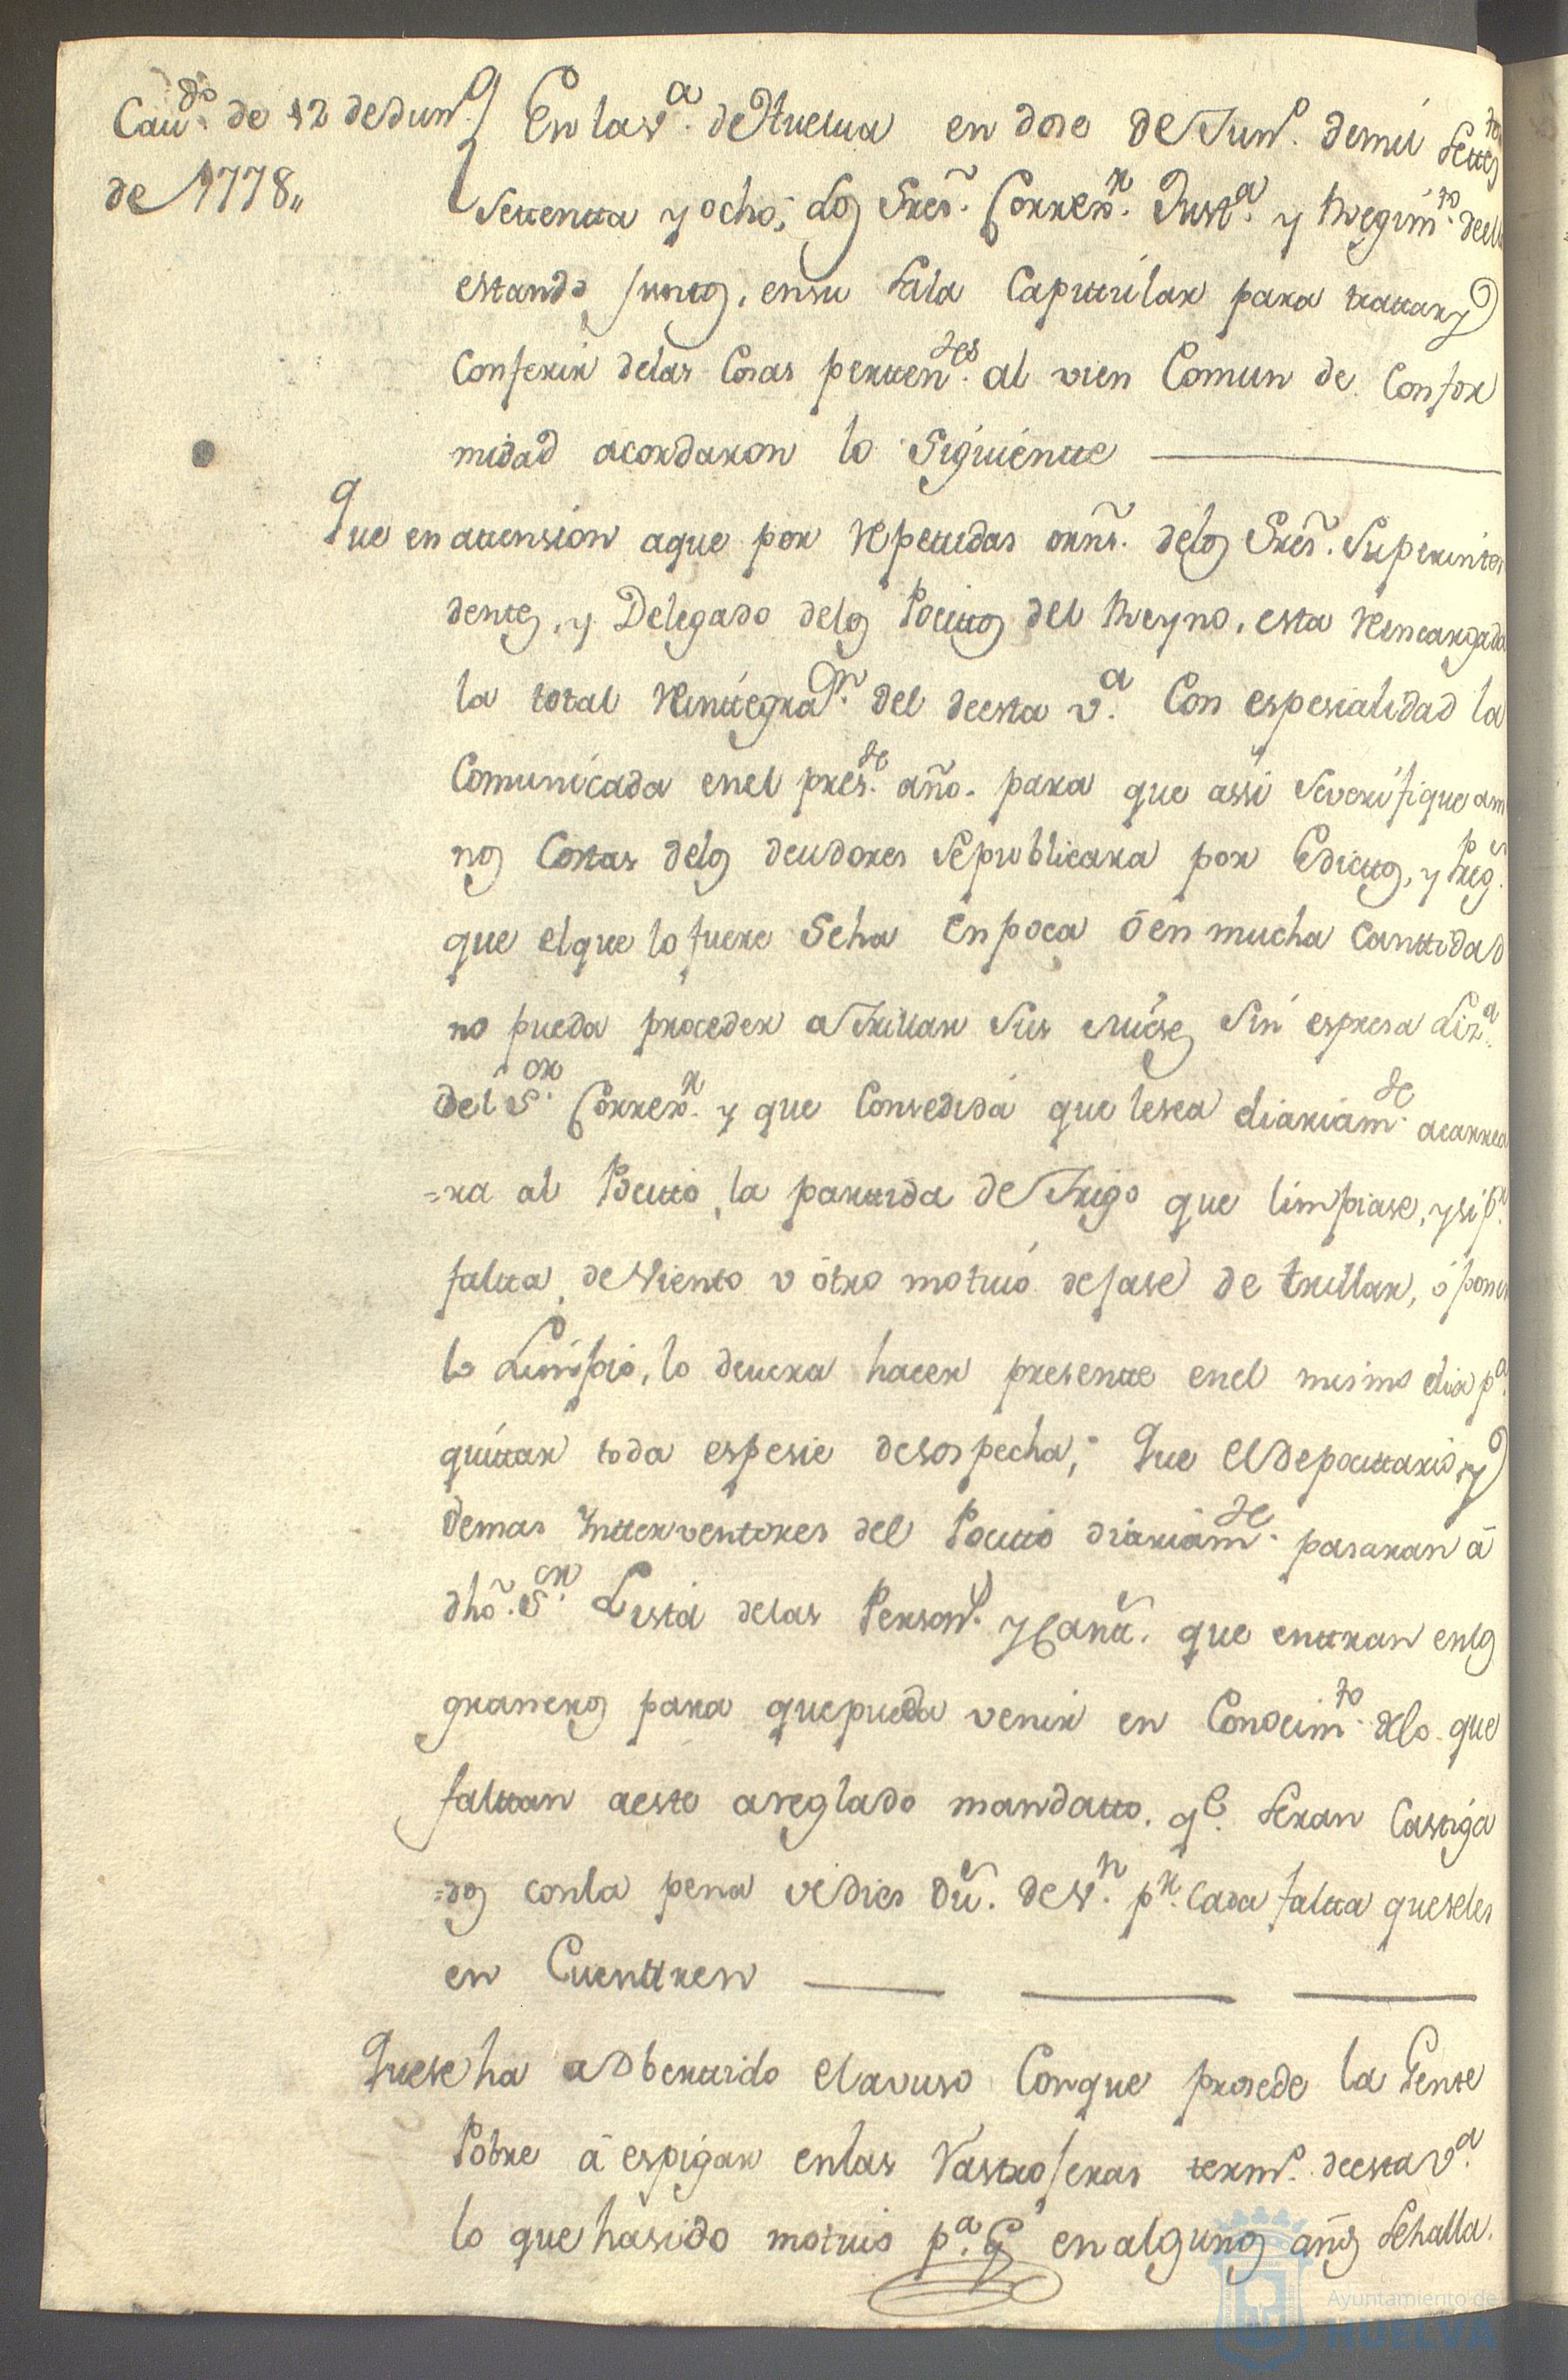 Cau.do de 12 de Jun.o
de 1778,,
En la v.a de Huelua en dose de Jun.o demil settes
settentta y ocho; los Sres. Correx.r Just.a y Regim.to deella
estando juntos, ensu sala Capittular para trattar y
Conferir delas Cosas pertten.tes al vien Comun de Confor
midad acordaron lo Siguientte
Que en attension aque por repettidas orns. delos Sres. Superinten
dentes, y Delegado delos Pocittos del Reyno, esta reencargada
la total reinttegra.on del deesta v.a Con espesialidad la
Comunicada enel pres.te año. para que assi severifique am
nos Costas delos deudores sepublicara por Edicttos, y
que elque lo fuere Seha en poca ó en mucha canttidad
no pueda proceder a Trillar sus mieses sin espresa Liz.a
del S.or Correx.r y que Consedida que lesea diariam.te acarrea
=ra al Pocitto, la parttida de Trigo que limpiase, y si p.r
faltta, de Viento v ótro motiuo dejase de trillar, ó poner
lo Limpio, lo deuera hacer presentte enel mismo dia p.a
quittar toda espesie desospecha; Que el depocittario, y
demas Intterventores del Pocitto diariam.te pasaran á
dho. S.or Lista delas Person.s y Cantt. que enttran enlos
graneros para quepueda venir en Conocim.to delo que
falttan aeste areglado mandatto. q.e seran Castiga
=dos conla pena de dies du. de V.n p.r cada faltta queseles
en Cuenttren
Quese ha adberttido elavuso Conque prosede la Gente
Pobre á espigar enlas Rastrojeras term.o deesta v.a
lo que hasido motiuo p.a q en algunos años sehalla.
Ayuntamiento de
HUELVA